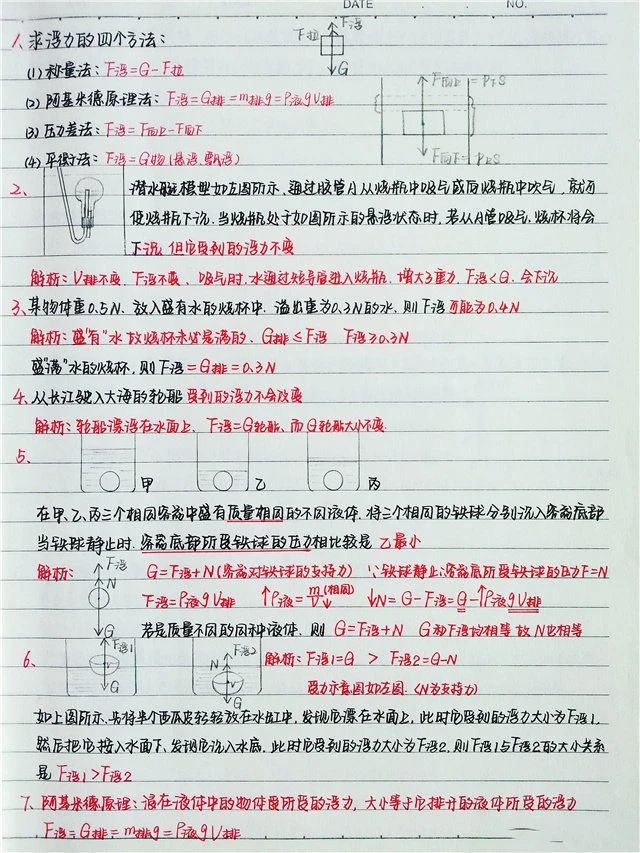 DATE . . NO.
1、求浮力的四个方法：
F浮
F拉
G
(1) 称量法：F浮=G-F拉
(2) 阿基米德原理法：F浮=G排=m排g=ρ液gV排
F向上=P下S
(3) 压力差法：F浮=F向上-F向下
F向下=P上S
(4) 平衡法：F浮=G物(悬浮、飘浮)
2、潜水艇模型如左图所示、通过胶管A从烧瓶中吸气或向烧瓶中吹气，就可
使烧瓶下沉.当烧瓶处于如图所示的悬浮状态时,若从A管吸气.烧杯将会
下沉,但它受到的浮力不变
解析：V排不变、F浮不变、吸气时.水通过短导管进入烧瓶.增大了重力,F浮<G.会下沉
3、某物体重0.5N、放入盛有水的烧杯中.溢出重为0.3N的水,则F浮可能为0.4N
解析：盛"有"水故烧杯未必是满的、G排≤F浮 F浮≥0.3N
盛"满"水的烧杯,则F浮=G排=0.3N
4、从长江驶入大海的轮船受到的浮力不会改变
解析：轮船漂浮在水面上、F浮=G轮船、而G轮船大小不变.
5、
甲 乙 丙
在甲、乙、丙三个相同容器中盛有质量相同的不同液体.将三个相同的铁球分别沉入容器底部
当铁球静止时.容器底部所受铁球的压力相比较是 乙最小
解析：
F浮
N
G
G=F浮+N(容器对铁球的支持力) ∵铁球静止∴容器底所受铁球的压力F=N
F浮=ρ液gV排 ↑ρ液=m/V↓(相同) ↓N=G-F浮=G-↑ρ液gV排
若是质量不同的同种液体.则 G=F浮+N G和F浮均相等 故N也相等
6、
F浮1
G
F浮2
N
G
解析：F浮1=G > F浮2=G-N
受力示意图如左图.(N为支持力)
如上图所示.先将半个西瓜皮轻轻放在水缸中,发现它漂在水面上,此时它受到的浮力大小为F浮1.
然后把它按入水面下、发现它沉入水底.此时它受到的浮力大小为F浮2,则F浮1与F浮2的大小关系
是F浮1>F浮2
7、阿基米德原理：浸在液体中的物体受所受的浮力,大小等于它排开的液体所受的浮力
F浮=G排=m排g=ρ液gV排